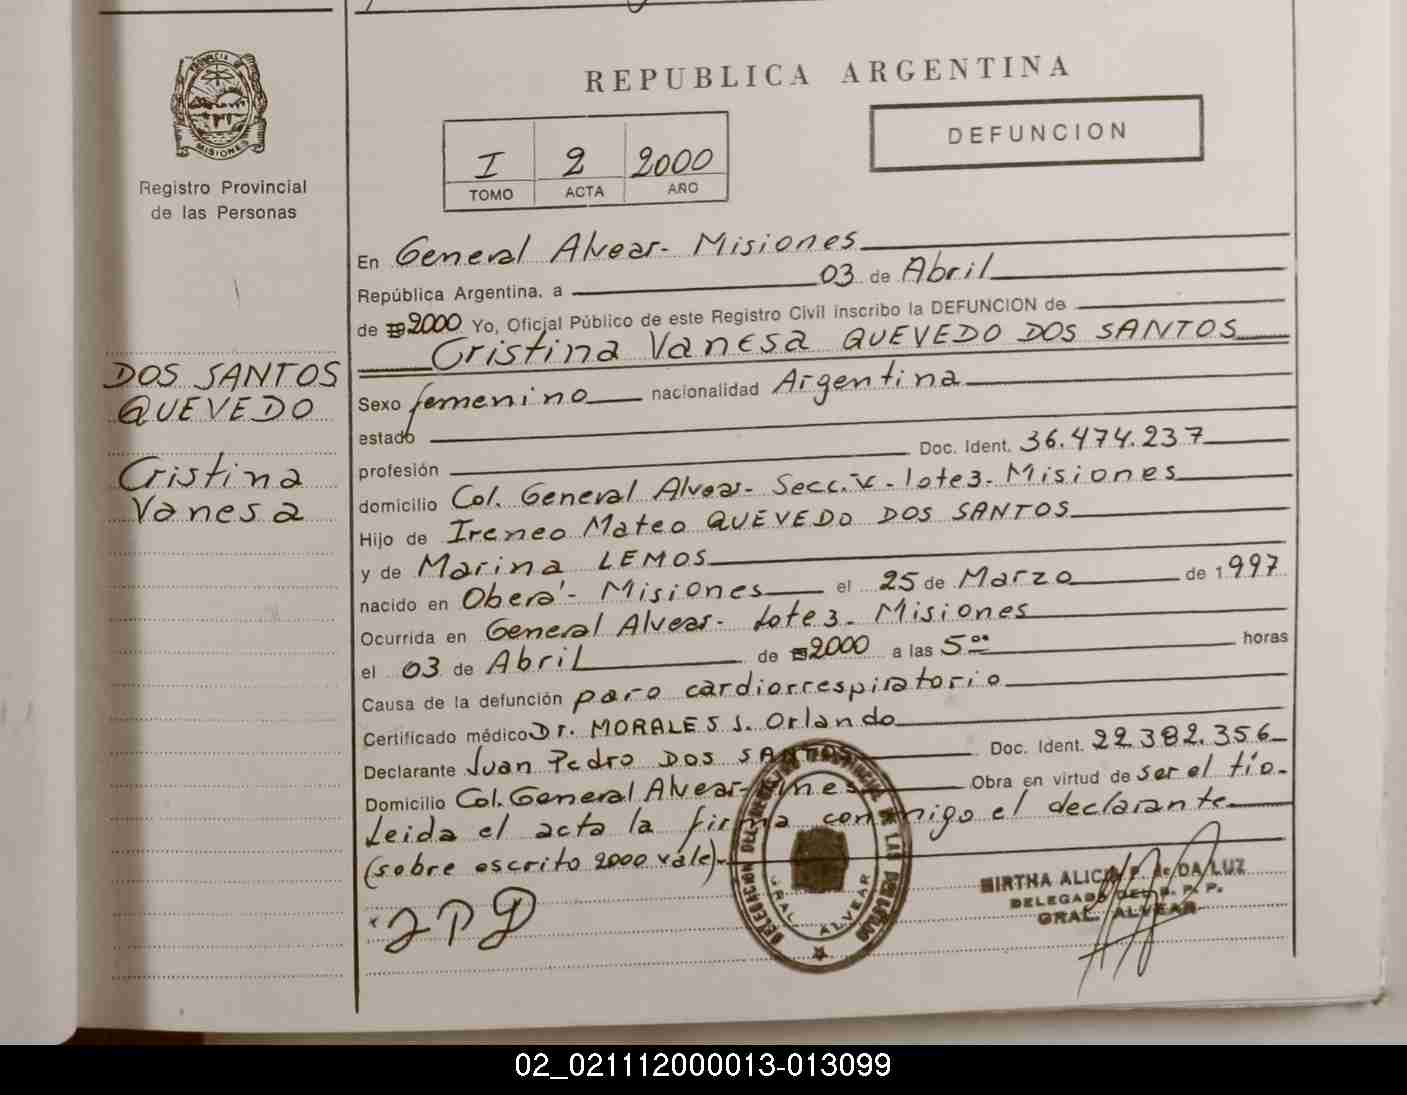 REPUBLICA ARGENTINA
DEFUNCION
I 2 2000
TOMO ACTA AÑO
PROVINCIA DE
MISIONES
Registro Provincial
de las Personas
DOS SANTOS
QUEVEDO
Cristina
Vanesa
En General Alvear- Misiones
República Argentina, a 03 de Abril
de 2000 Yo, Oficial Público de este Registro Civil inscribo la DEFUNCION de
Cristina Vanesa QUEVEDO DOS SANTOS
Sexo femenino nacionalidad Argentina
estado
profesión Doc. Ident. 36.474.237
domicilio Col. General Alvear- Secc. V - lote 3- Misiones
Hijo de Ireneo Mateo QUEVEDO DOS SANTOS
y de Marina LEMOS
nacido en Oberá - Misiones el 25 de Marzo de 1997
Ocurrida en General Alvear- Lote 3- Misiones
el 03 de Abril de 2000 a las 5 00 horas
Causa de la defunción paro cardiorrespiratorio
Certificado médico Dr. MORALES J. Orlando
Declarante Juan Pedro DOS SANTOS Doc. Ident. 22.382.356
Domicilio Col. General Alvear- Mnes Obra en virtud de ser el tío-
Leida el acta la firma conmigo el declarante
(sobre escrito 2000 vale)-
JPD
GRAL. ALVEAR
MIRTHA ALICIA F. de DA LUZ
DELEGADO DEL R. P. P.
GRAL. ALVEAR
02_021112000013-013099